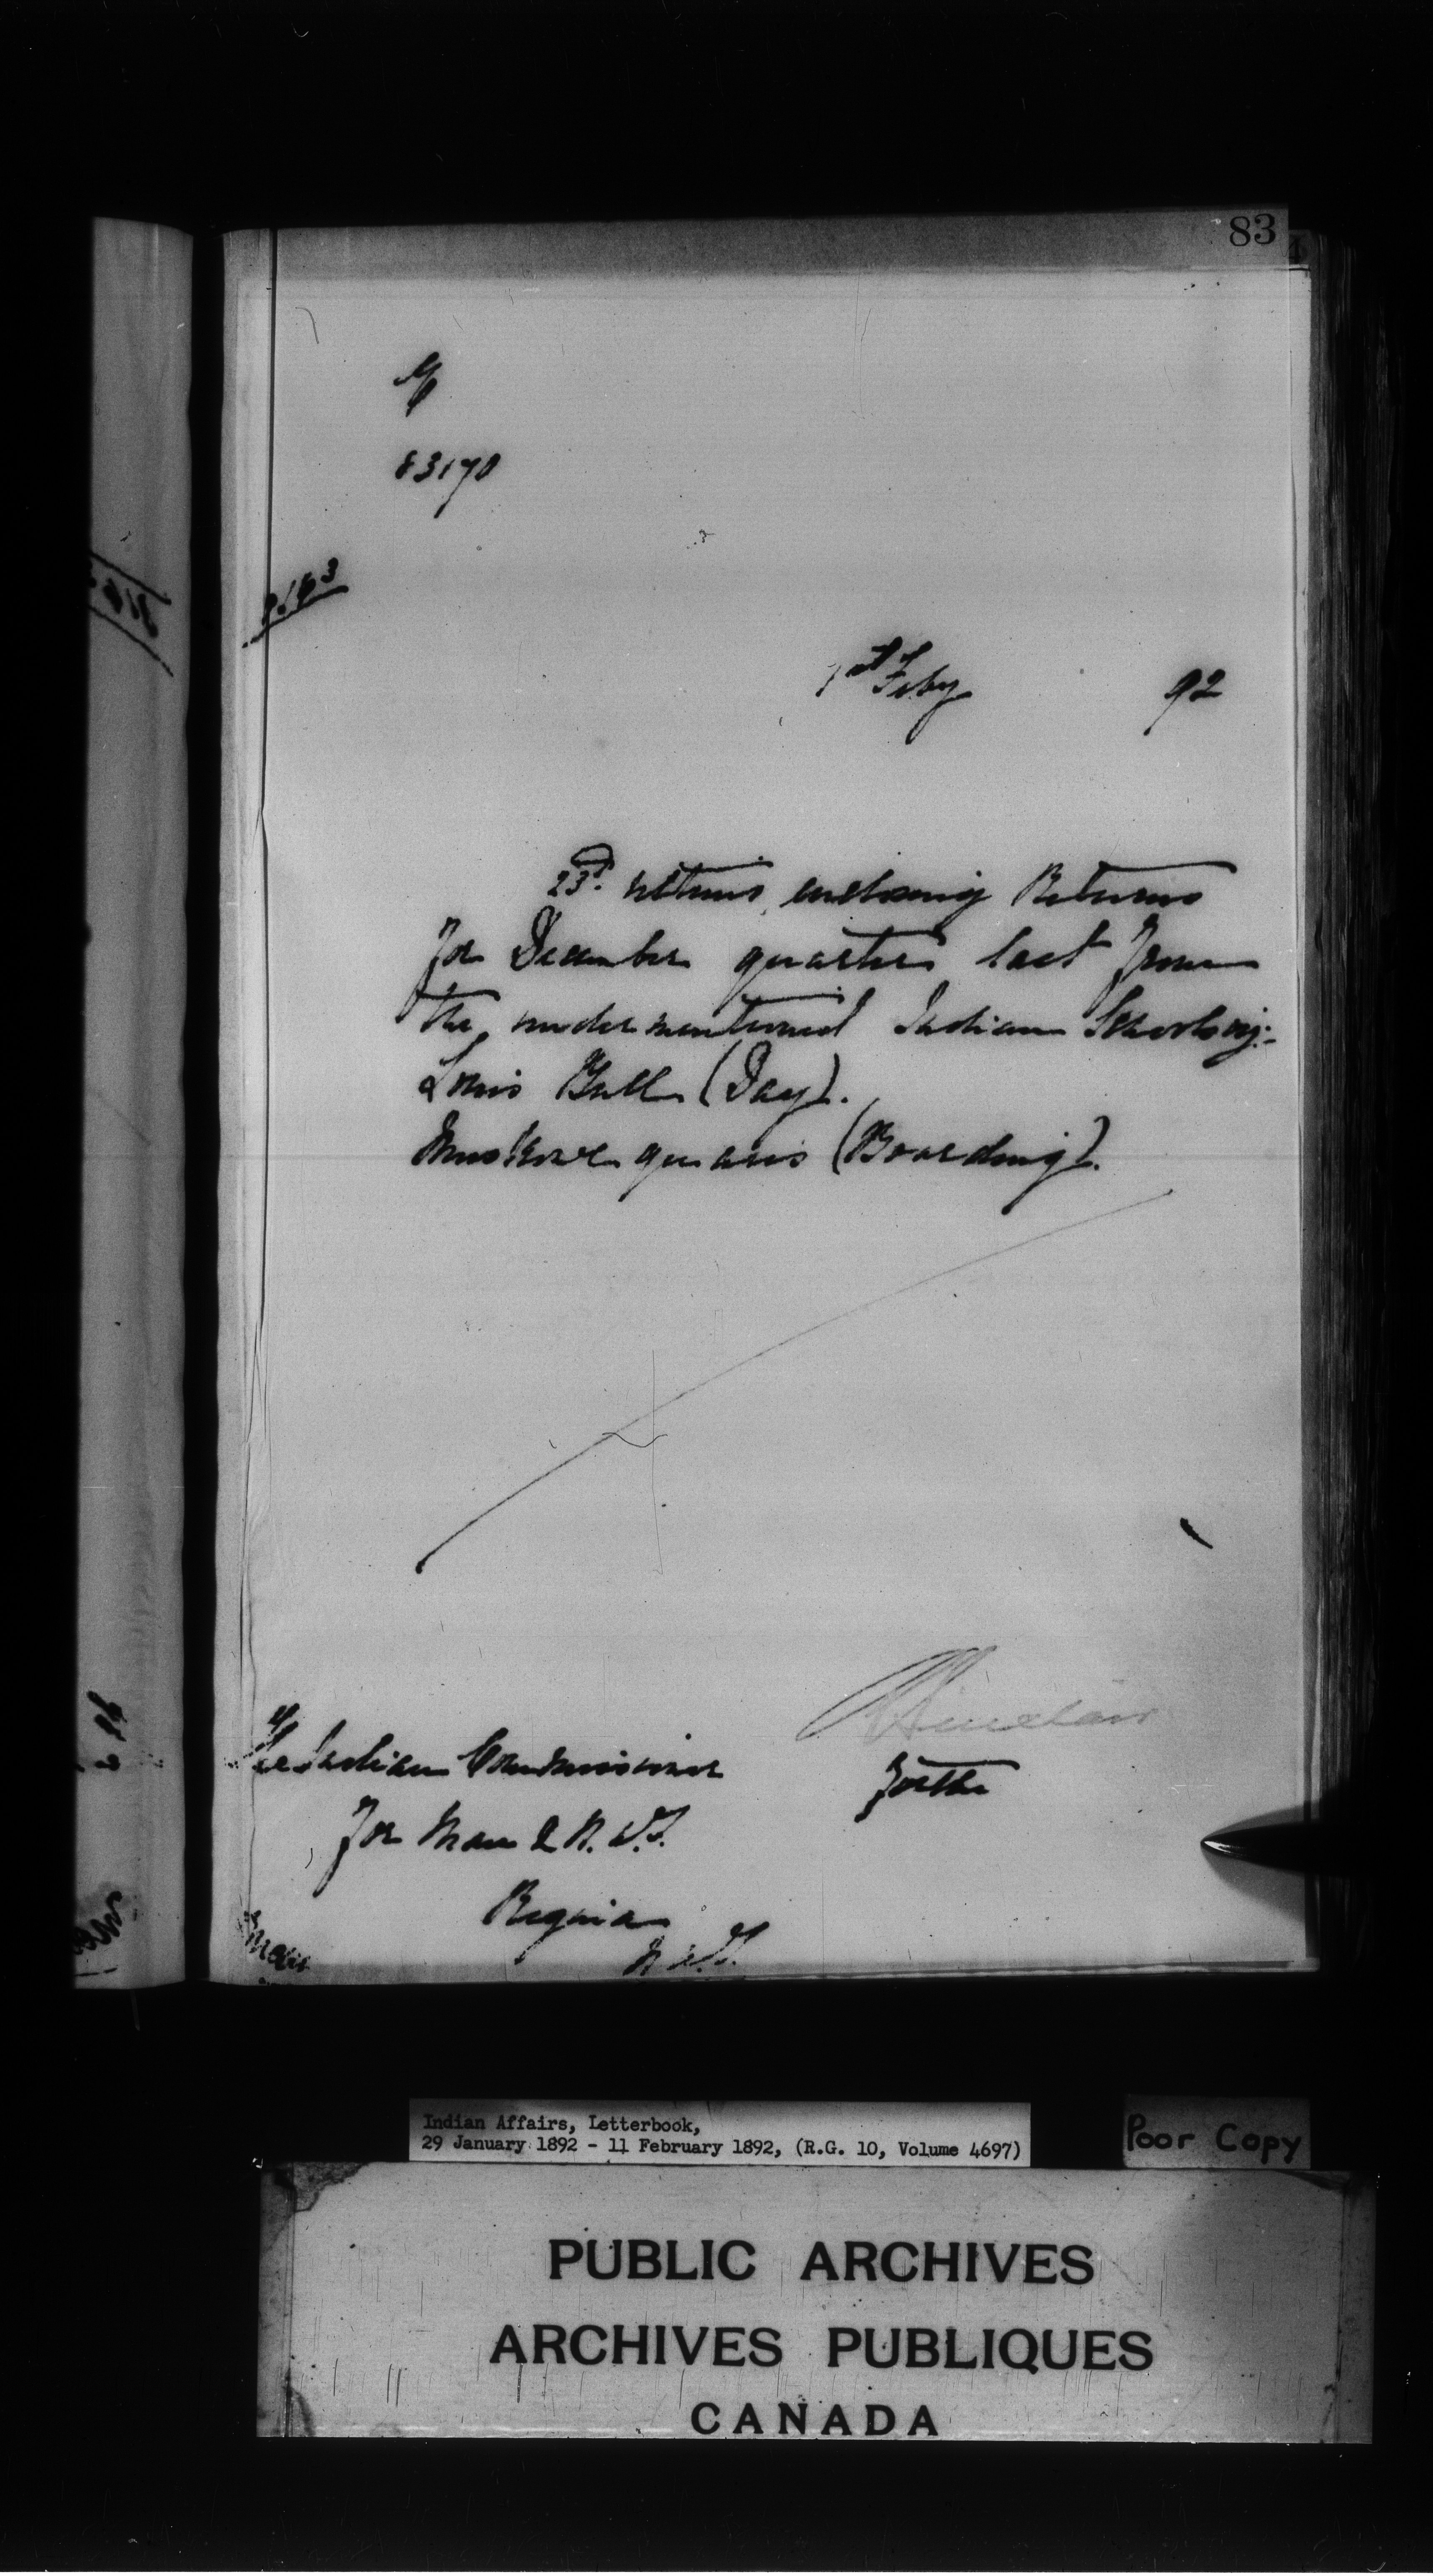 83
83170
1st Feby 92
23rd ultimo, enclosing Returns
for December quarter last from
the undermentioned Indian Schools viz:-
Louis Bull (Day).
Muskowequans (Boarding).
Sinclair
for the
The Indian Commissioner
for Man & N.W.T.
Regina
N.W.T.
Indian Affairs, Letterbook,
29 January 1892 - 11 February 1892, (R.G. 10, Volume 4697)
Poor Copy
PUBLIC ARCHIVES
ARCHIVES PUBLIQUES
CANADA